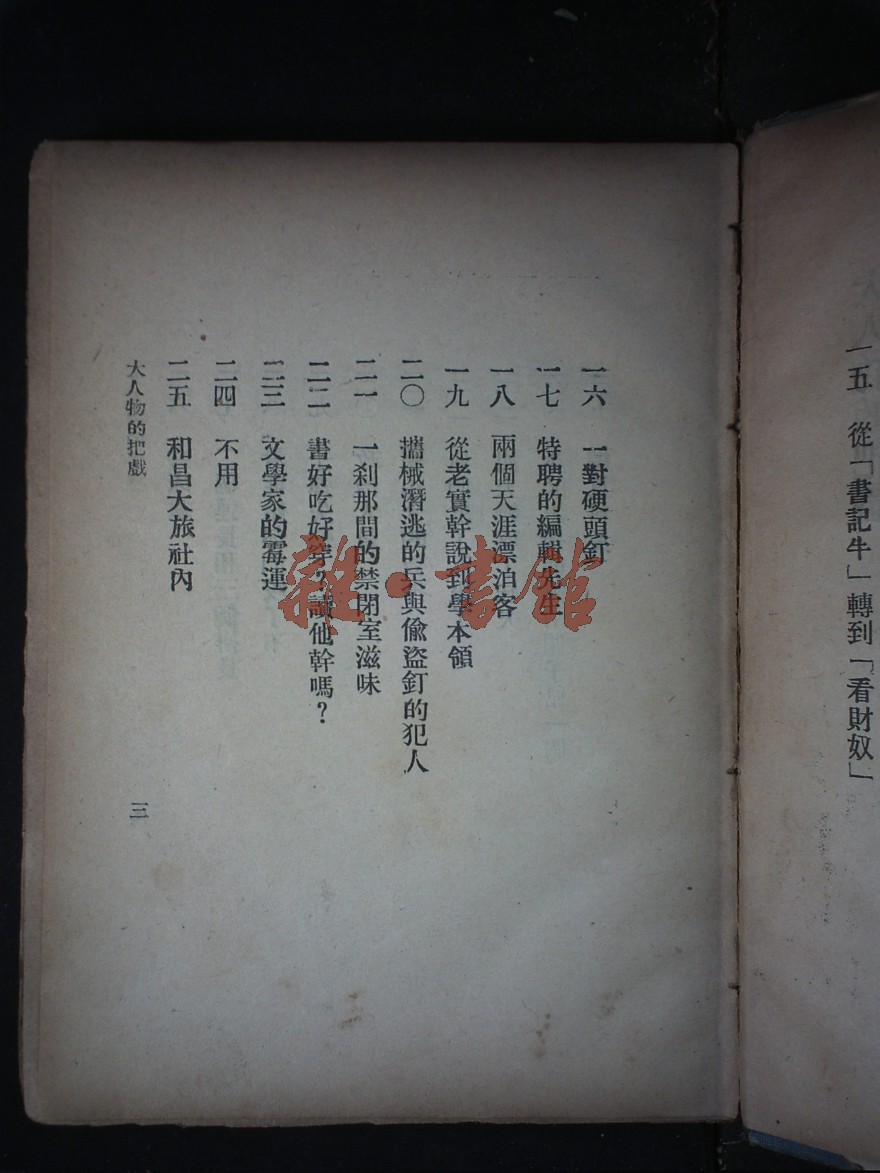 一五 從「書記牛」轉到「看財奴」
一六 一對硬頭釘
一七 特聘的編輯先生
一八 兩個天涯漂泊客
一九 從老實幹說到學本領
二〇 攜械潛逃的兵與偷盜釘的犯人
二一 一刹那間的禁閉室滋味
二二 書好吃好穿？讀他幹嗎？
二三 文學家的霉運
二四 不用
二五 和昌大旅社內
大人物的把戲
三
雜·書館